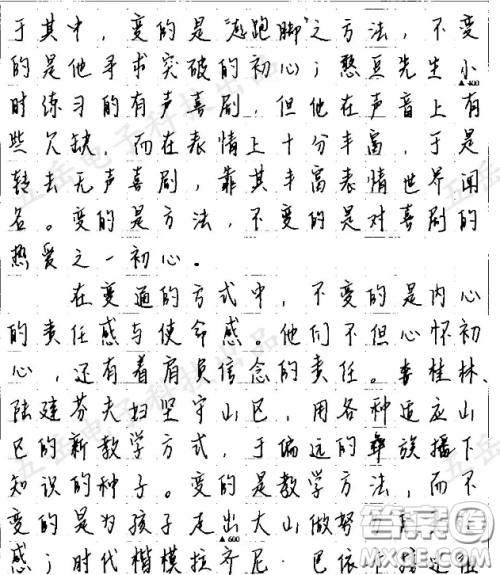 于其中，变的是“逃跑脚”之方法，不变
的是他寻求突破的初心；憨豆先生小
▲400
时练习的有声喜剧，但他在声音上有
些欠缺，而在表情上十分丰富，于是
转去无声喜剧，靠其丰富表情世界闻
名。变的是方法，不变的是对喜剧的
热爱之一初心。
在变通的方式中，不变的是内心
的责任感与使命感。他们不但心怀初
心，还有着肩负信念的责任。李桂林、
陆建芬夫妇坚守山区，用各种适应山
区的新教学方式，于偏远的彝族播下
知识的种子。变的是教学方法，而不
变的是为孩子走出大山做努
▲600
感；时代楷模拉齐尼·巴依卡